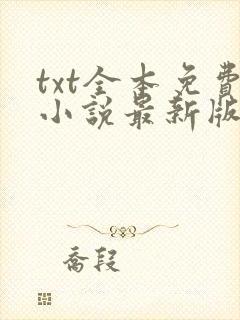 txt全本免費
小說最新版
喬段